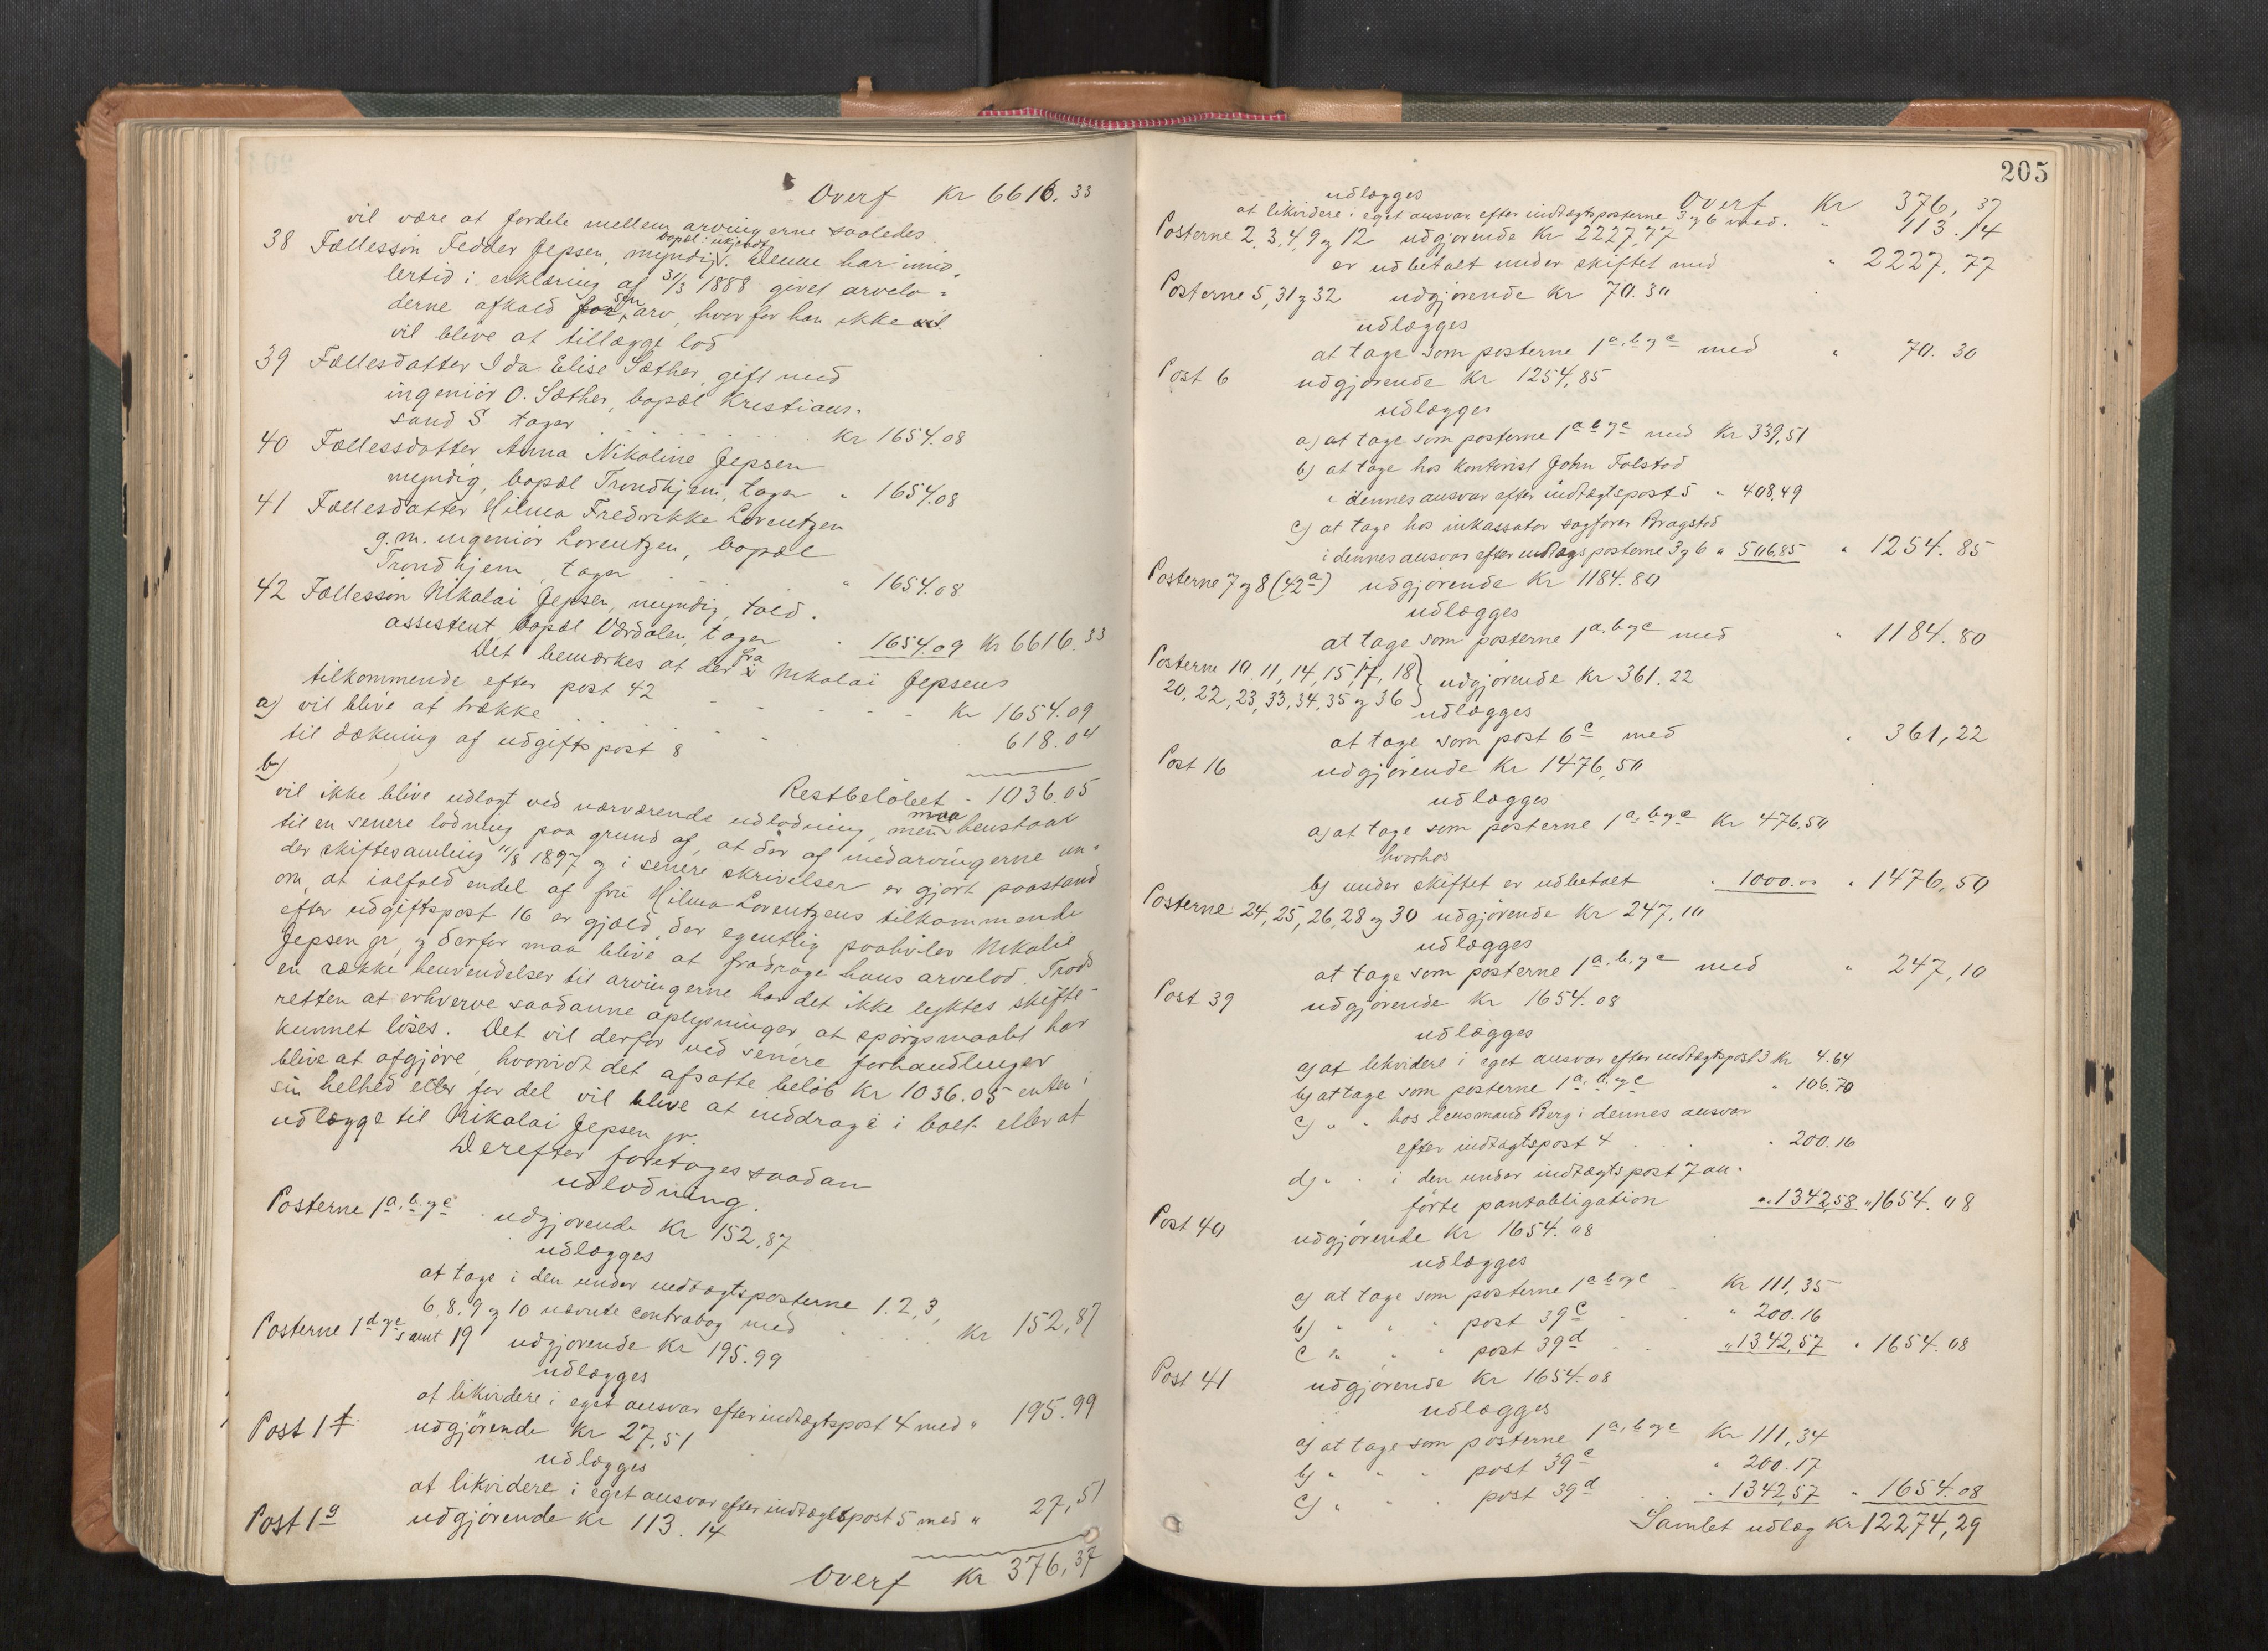 Overf Kr 6616.33
vil være at fordele mellem arvingerne saaledes
38 Fællesson Fedder Jepsen, myndig, bopæl: ukjendt. Denne har imid-
lertid i erklæring af 31/3 1888 givet arvela-
derne afkald for sin arv, hvorfor han ikke vil
vil blive at tillægge lod
39 Fællesdatter Ida Elise Sæther, gift med
ingeniör O. Sæther, bopæl Kristian-
sand S tager Kr 1654.08
40 Fællessdatter Anna Nikoline Jepsen
myndig, bopæl Trondhjem, tager " 1654.08
41 Fællesdatter Hilma Fredrikke Lorentzen
g.m. ingeniör Lorentzen, bopæl
Trondhjem, tager " 1654.08
42 Fællesson Nikolai Jepsen, myndig, told-
assistent, bopæl Værdalen, tager " 1654.09 Kr 6616.33
Det bemærkes at der fra i Nikolai Jepsens
tilkommende efter post 42 Kr 1654.09
a) vil blive at trække
til dækning af udgiftspost 8 618.04
b) Restbelöbet - 1036.05
vil ikke blive udlagt ved nærværende udlodning, men maa henstaar
til en senere lodning paa grund af, at der af medarvingerne un-
der skiftesamling 11/8 1897 og i senere skrivelser er gjort paastand
om, at ialfald endel af fru Hilma Lorentzens tilkommende
efter udgiftspost 16 er gjæld, der egentlig paahviler Nikolai
Jepsen jr, og derfor maa blive at fradrage hans arvelod. Trods
en række henvendelser til arvingerne har det ikke lyktes skifte-
retten at erhverve saadanne oplysninger, at spörgsmaalet har
kunnet löses. Det vil derfor ved senere forhandlinger
blive at afgjöre, hvorvidt det afsatte belöb Kr 1036.05 enten i
sin helhed eller for del vil blive at inddrage i boet eller at
udlægge til Nikolai Jepsen jr.
Derefter foretages saadan
udlodning.
Posterne 1a, b og c udgjörende Kr 152,87
udlægges
at tage i den under indtægtsposterne 1. 2, 3,
6, 8, 9 og 10 nævnte contrabog med Kr 152,87
Posterne 1d og e samt 19 udgjörende Kr 195.99
udlægges
at likvidere i eget ansvar efter indtægtspost 4 med " 195.99
Post 1f udgjörende Kr 27,51
udlægges
at likvidere i eget ansvar efter indtægtspost 5 med " 27,51
Post 1g udgjörende Kr 113.14
Overf Kr 376,37
205
udlægges Overf Kr 376,37
at likvidere i eget ansvar efter indtægtsposterne 3 og 6 med " 113.14
Posterne 2, 3, 4, 9 og 12 udgjörende Kr 2227,77
er udbetalt under skiftet med " 2227,77
Posterne 5, 31 og 32 udgjörende Kr 70.30
udlægges
at tage som posterne 1a, b og c med " 70.30
Post 6 udgjörende Kr 1254,85
udlægges
a) at tage som posterne 1a b og c med Kr 339,51
b) at tage hos kontorist John Folstad
i dennes ansvar efter indtægtspost 5 " 408,49
c) at tage hos inkassator sagförer Bragstad
i dennes ansvar efter indtægtsposterne 3 og 6 " 506.85 " 1254.85
Posterne 7 og 8 (42a) udgjörende Kr 1184.80
udlægges
at tage som posterne 1a, b og c med " 1184.80
Posterne 10. 11, 14, 15, 17, 18
20, 22, 23, 33, 34, 35 og 36 } udgjörende Kr 361.22
udlægges
at tage som post 6c med " 361,22
Post 16 udgjörende Kr 1476,50
udlægges
a) at tage som posterne 1a, b og c Kr 476,50
hvorhos
b) under skiftet er udbetalt " 1000.00 " 1476,50
Posterne 24, 25, 26, 28 og 30 udgjörende Kr 247.10
udlægges
at tage som posterne 1a, b og c med " 247,10
Post 39 udgjörende Kr 1654.08
udlægges
a) at likvidere i eget ansvar efter indtægtspost 3 Kr 4.64
b) at tage som posterne 1a, b og c " 106.70
c) " " hos lensmand Berg i dennes ansvar
efter indtægtspost 4 " 200.16
d) " " i den under indtægtspost 7 an-
förte pantobligation " 1342,58 " 1654.08
Post 40 udgjörende Kr 1654.08
udlægges
a) at tage som posterne 1a b og c Kr 111,35
b) " " " post 39c " 200.16
c " " " post 39d " 1342,57 " 1654.08
Post 41 udgjörende Kr 1654.08
udlægges
a) at tage som posterne 1a, b og c Kr 111,34
b) " " " post 39c " 200.17
c) " " " post 39d " 1342,57 " 1654.08
Samlet udlæg Kr 12274,29